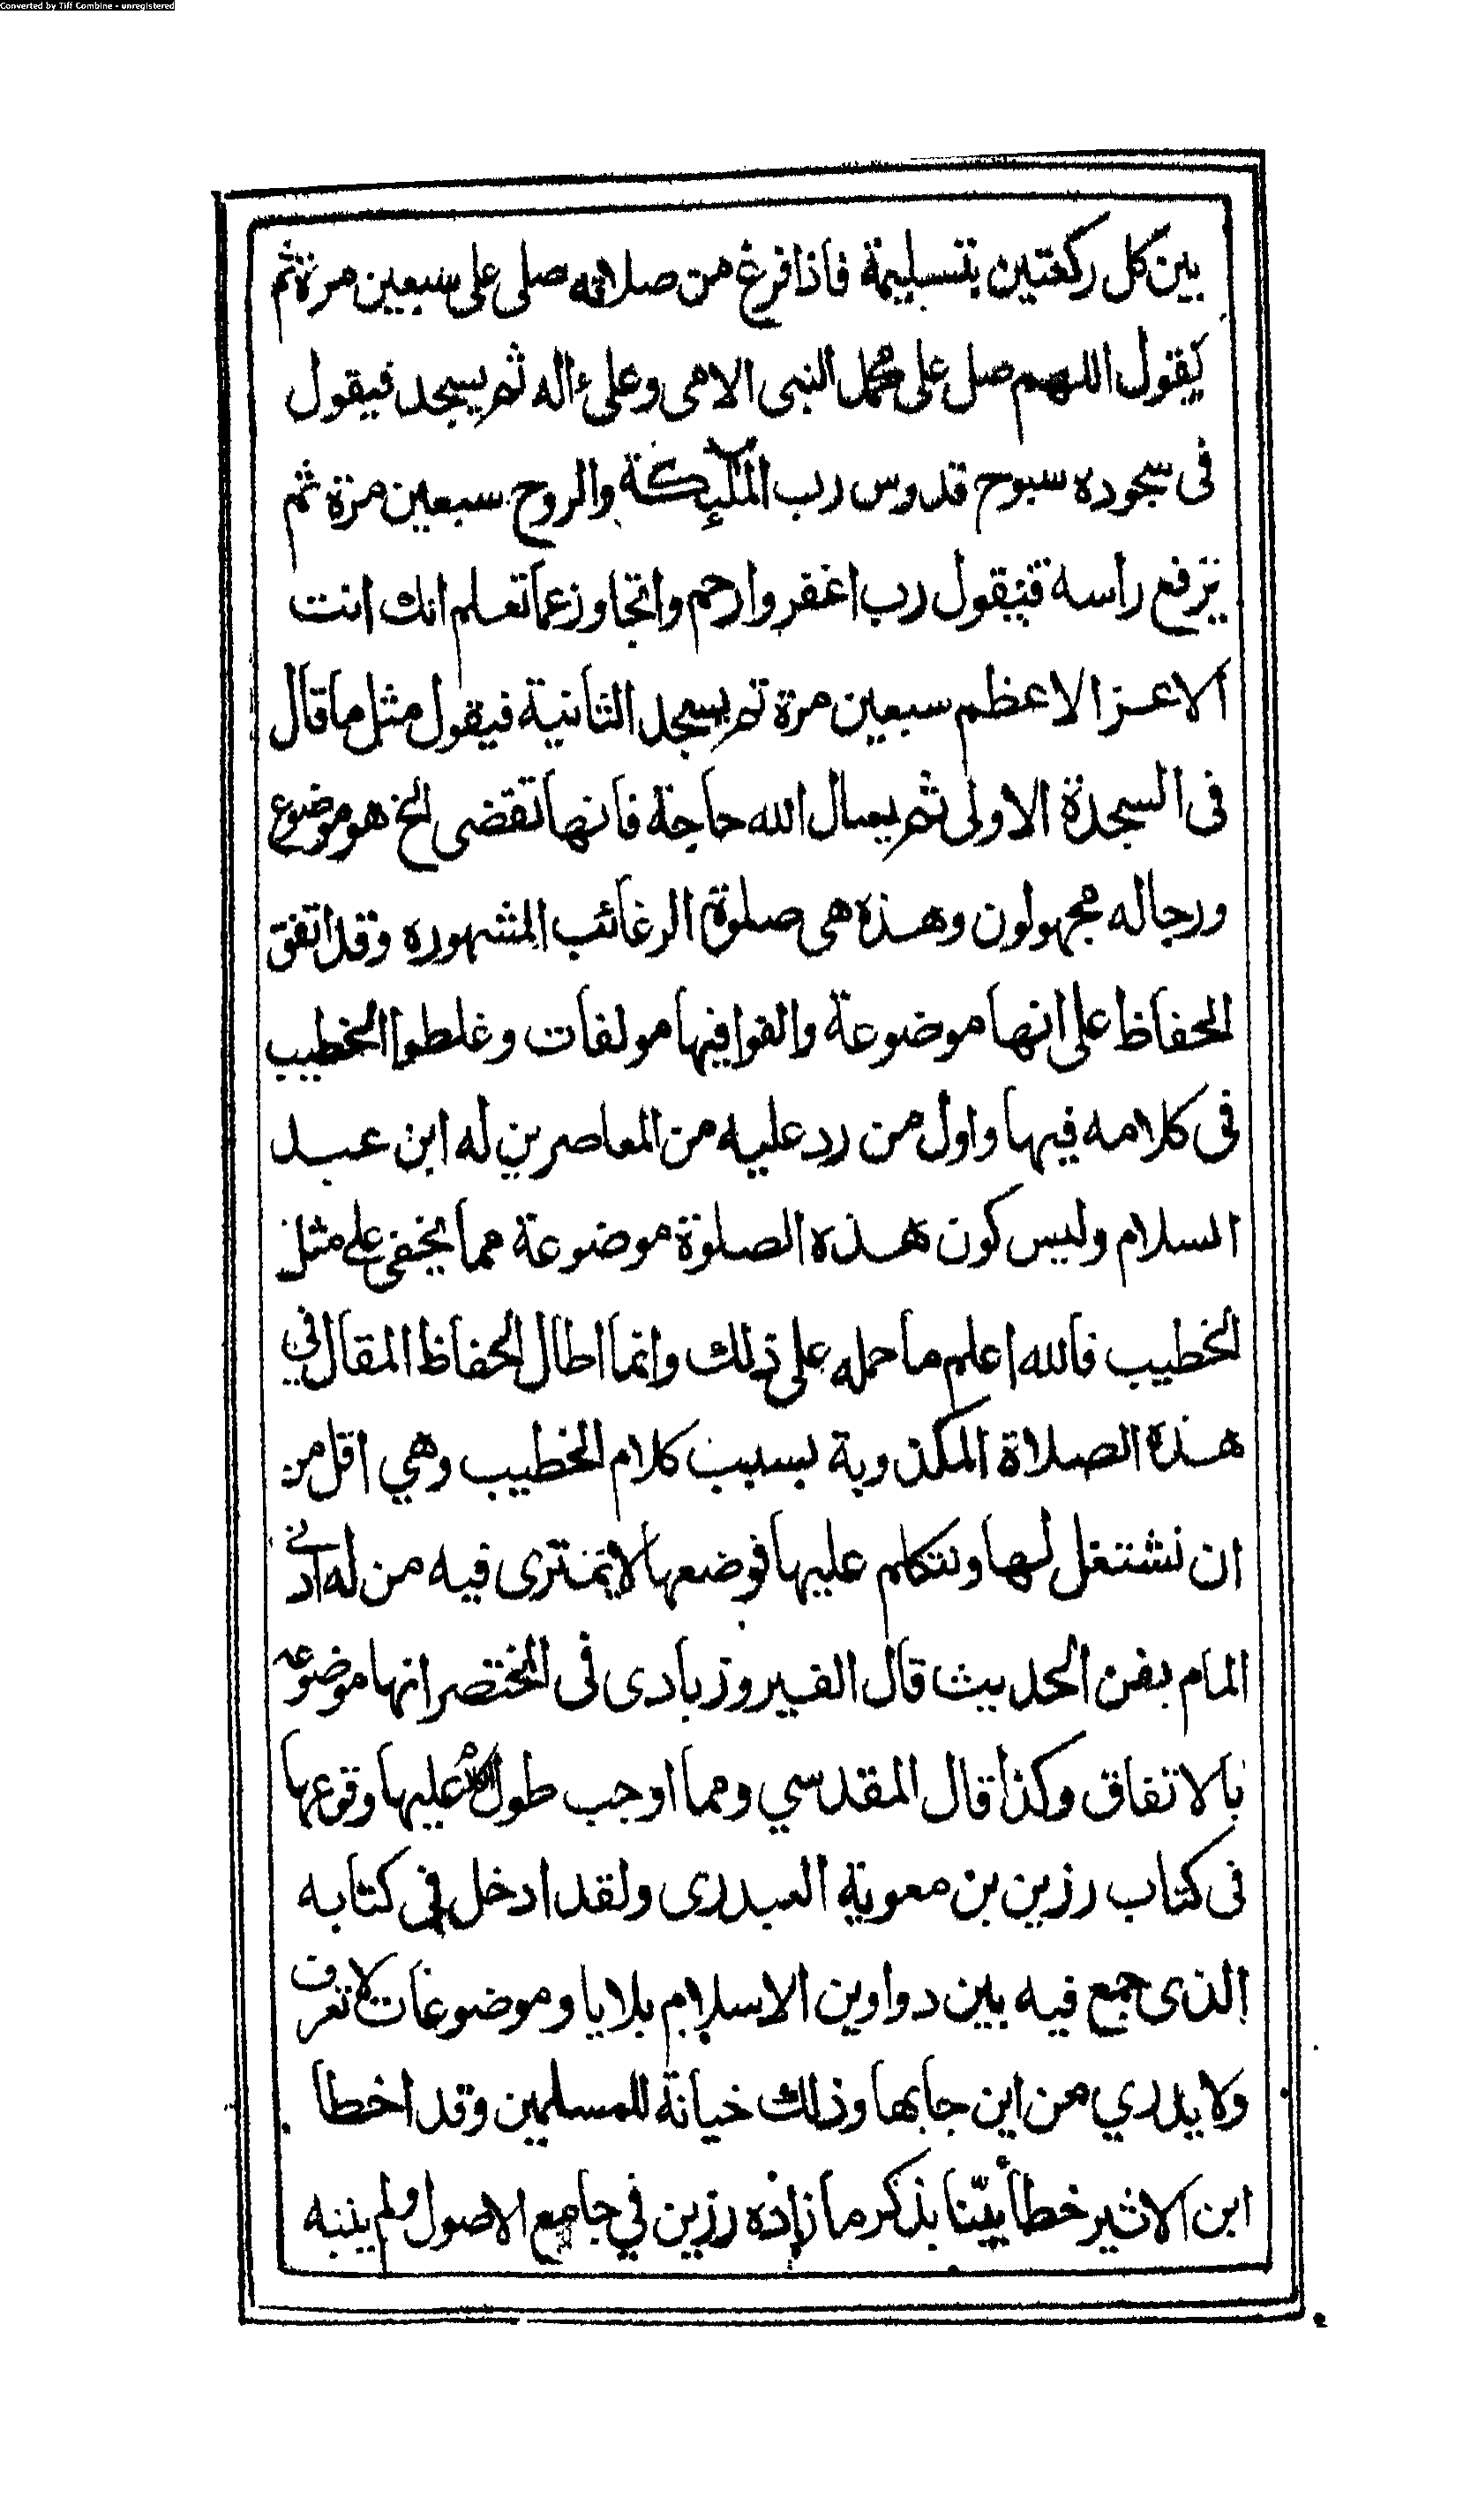 Converted by Tiff Combine - unregistered
بين كل ركعتين بتسليمة فاذا فرغ من صلاته صلى على سبعين مرة ثم
يقول اللهم صل على محمد النبى الامى وعلى ءاله ثم يسجد فيقول
فى سجوده سبوح قدوس رب الملئكة والروح سبعين مرة ثم
يرفع راسه فيقول رب اغفر وارحم واتجاوز عما تعلم انك انت
الاعز الاعظم سبعين مرة ثم يسجد الثانية فيقول مثل ما قال
فى السجدة الاولى ثم يسال الله حاجة فانها تقضى الخ هو موضوع
ورجاله مجهولون وهذه هى صلوة الرغائب المشهوره وقد اتفق
الحفاظ على انها موضوعة والفوا فيها مولفات وغلطوا الخطيب
فى كلامه فيها واول من رد عليه من المعاصرين له ابن عبد
السلام وليس كون هذه الصلوة موضوعة مما يخفى على مثل
الخطيب فالله اعلم ما حمله على ذلك وانما اطال الحفاظ المقال في
هذه الصلاة المكذوبة بسبب كلام الخطيب وهي اقل من
ان نشتغل لها ونتكلم عليها فوضعها لا يمترى فيه من له ادنى
المام بفن الحديث قال الفيروزبادى فى المختصر انها موضوعه
بالاتفاق وكذا قال المقدسي ومما اوجب طول الكلام عليها وقوعها
فى كتاب رزين بن معوية العبدرى ولقد ادخل في كتابه
الذى جمع فيه بين دواوين الاسلام بلايا وموضوعات لا تعرف
ولا يدري من اين جابها وذلك خيانة للمسلمين وقد اخطا
ابن الاثير خطأ بيّنا بذكر ما زاده رزين في جامع الاصول ولم ينبه